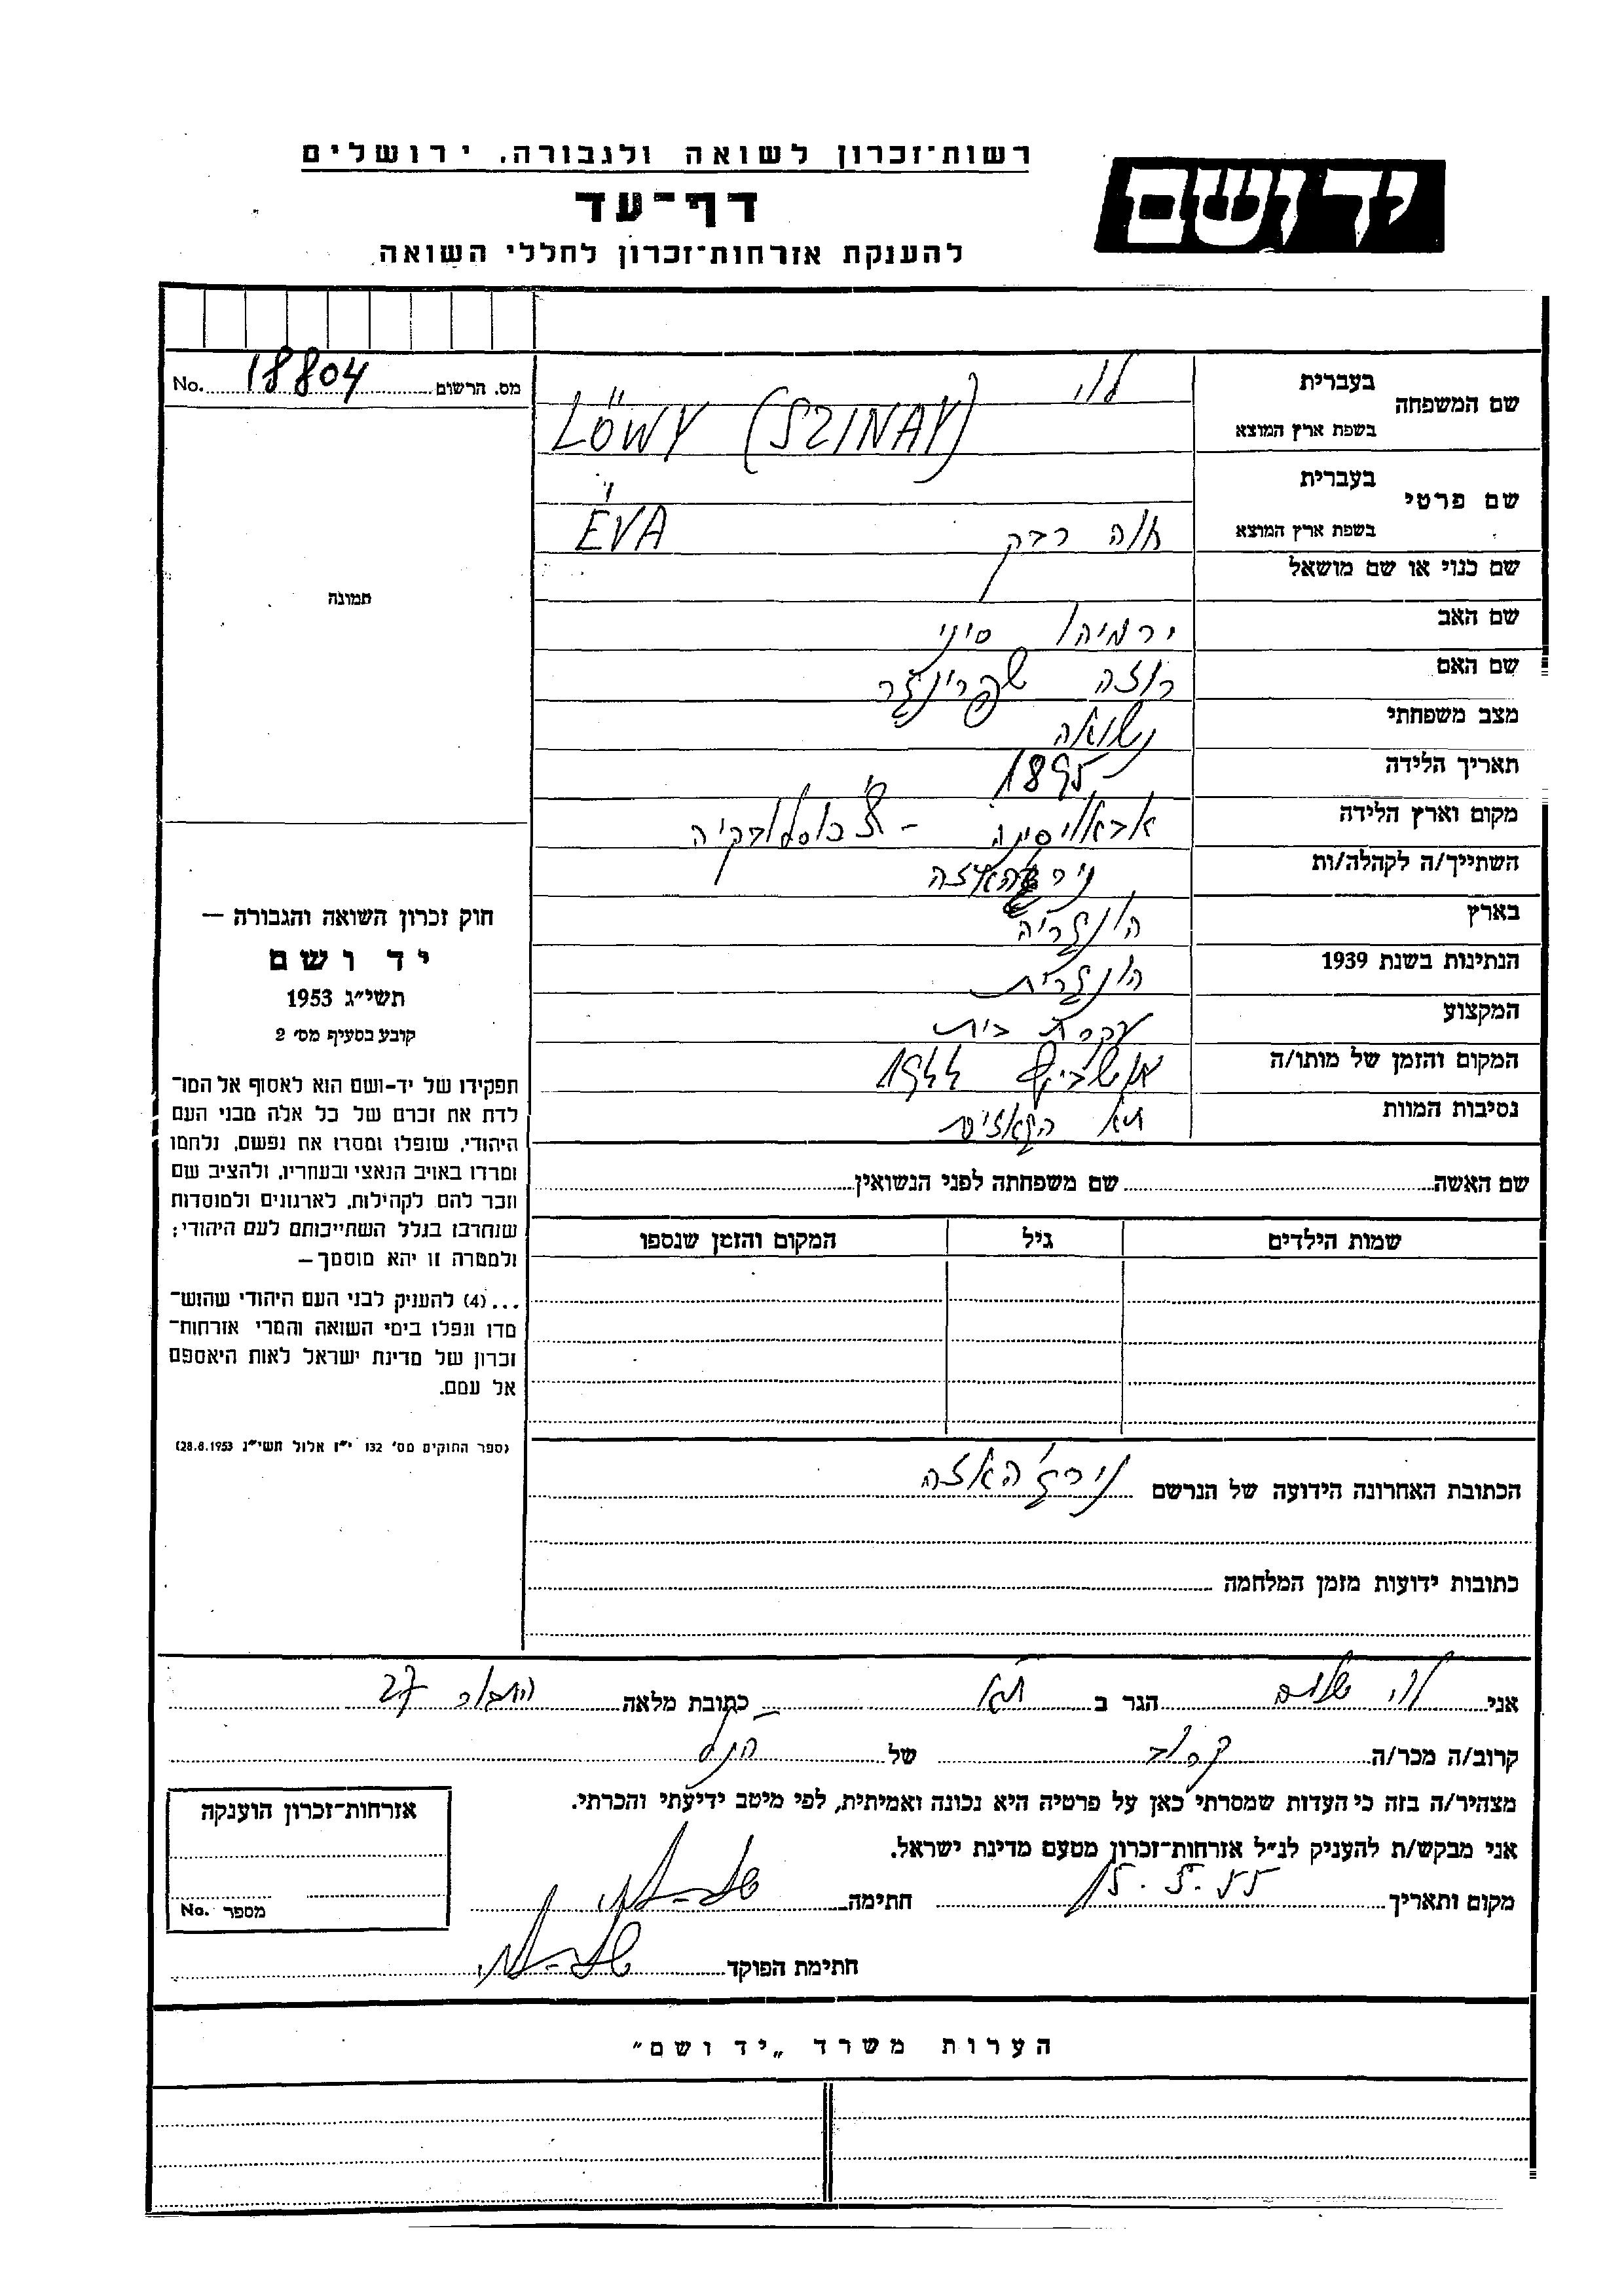 רשות־זכרון לשואה ולגבורה, ירושלים
יד ושם
דף־עד
להענקת אזרחות־זכרון לחללי השואה
מס. הרשום 18804 No.
שם המשפחה בעברית לוי
בשפת ארץ המוצא LÖWY (SZINAY)
שם פרטי בעברית
בשפת ארץ המוצא חוה רבק ÉVA
שם כנוי או שם מושאל
שם האב ירמיהו סיני
שם האם רוזה שפרינגר
מצב משפחתי נשואה
תאריך הלידה 1895
מקום וארץ הלידה - צ'כוסלובקיה
השתייך/ה לקהלה/ות
בארץ הונגריה
הנתינות בשנת 1939 הונגרית
המקצוע עקרת בית
המקום והזמן של מותו/ה אושביץ 1944
נסיבות המוות תא הגאזים
תמונה
חוק זכרון השואה והגבורה —
יד ושם
תשי״ג 1953
קובע בסעיף מס׳ 2
תפקידו של יד-ושם הוא לאסוף אל המו־
לדת את זכרם של כל אלה מבני העם
היהודי, שנפלו ומסרו את נפשם, נלחמו
ומרדו באויב הנאצי ובעוזריו, ולהציב שם
וזכר להם לקהילות, לארגונים ולמוסדות
שנחרבו בגלל השתייכותם לעם היהודי;
ולמטרה זו יהא מוסמך—
...(4) להעניק לבני העם היהודי שהוש־
מדו ונפלו בימי השואה והמרי אזרחות־
זכרון של מדינת ישראל לאות היאספם
אל עמם.
(ספר החוקים מס׳ 132 י״ז אלול תשי״ג 28.8.1953)
שם האשה שם משפחתה לפני הנשואין
שמות הילדים גיל המקום והזמן שנספו
הכתובת האחרונה הידועה של הנרשם נירג'האזה
כתובות ידועות מזמן המלחמה
אני לוי שלום הגר ב ת״א כתובת מלאה 27
קרוב/ה מכר/ה קרוב של הנ״ל
מצהיר/ה בזה כי העדות שמסרתי כאן על פרטיה היא נכונה ואמיתית, לפי מיטב ידיעתי והכרתי.
אני מבקש/ת להעניק לנ״ל אזרחות־זכרון מטעם מדינת ישראל.
מקום ותאריך חתימה
חתימת הפוקד
אזרחות־זכרון הוענקה
מספר No.
הערות משרד „יד ושם״